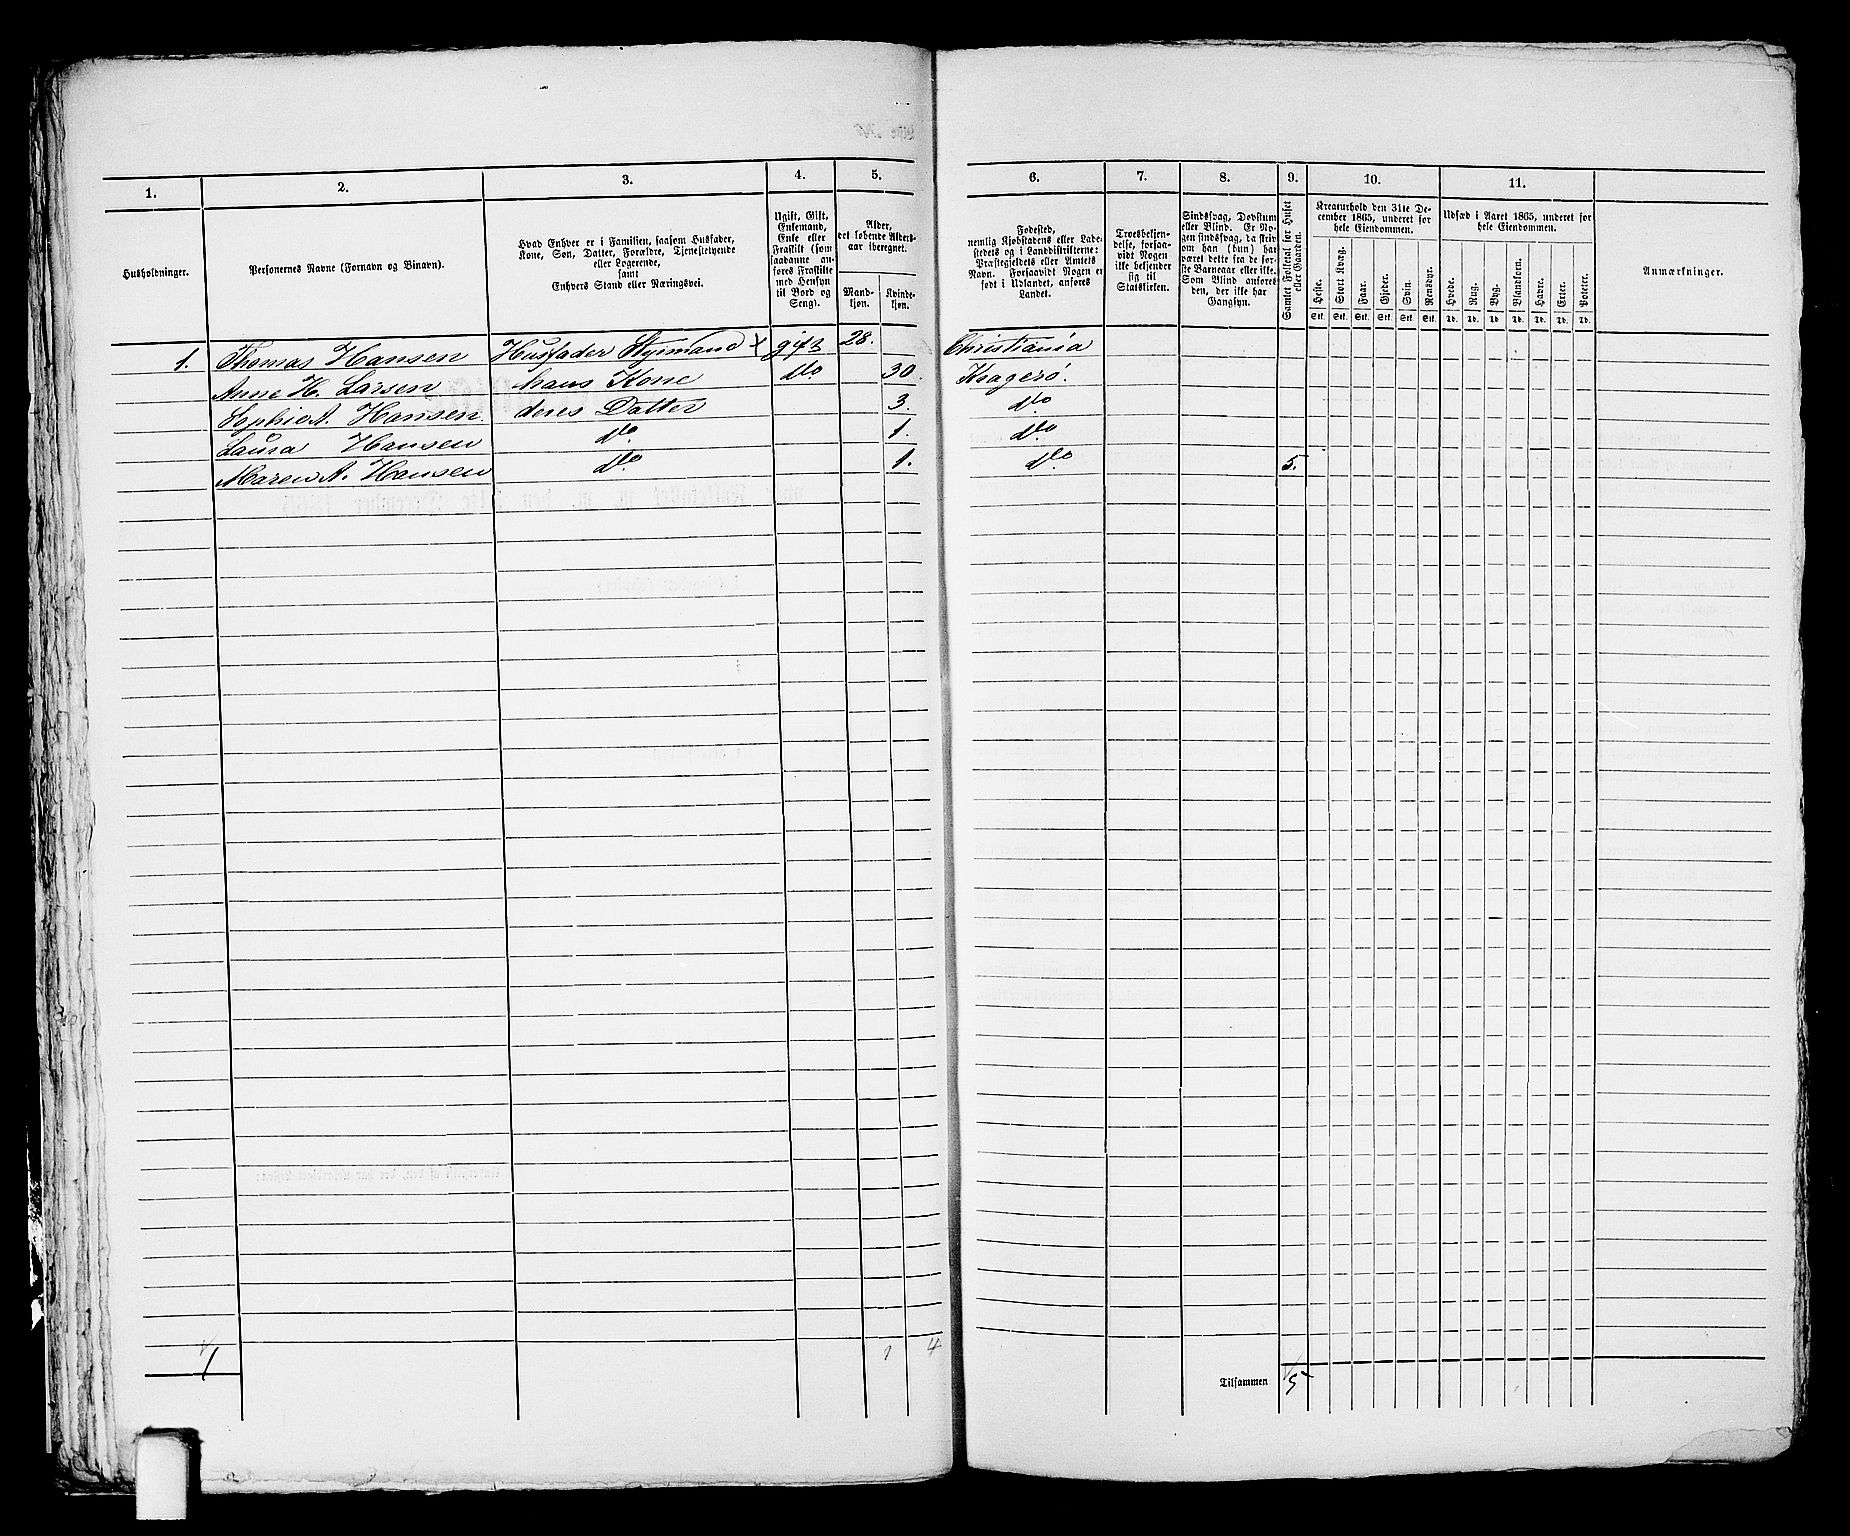 1. 2. 3. 4. 5. 6. 7. 8. 9. 10. 11.
Husholdninger.
Personernes Navne (Fornavn og Binavn).
Hvad Enhver er i Familien, saasom Husfader,
Kone, Søn, Datter, Forældre, Tjenestetyende
eller Logerende,
samt
Enhvers Stand eller Næringsvei.
Ugift, Gift,
Enkemand,
Enke eller
Fraskilt (som
saadanne an-
føres Fraskilte
med Hensyn
til Bord og
Seng).
Alder,
det løbende Alders-
aar iberegnet.
Mand-
kjøn.
Kvinde-
kjøn.
Fødested,
nemlig Kjøbstadens eller Lade-
stedets og i Landdistrikterne:
Præstegjeldets eller Amtets
Navn. Forsaavidt Nogen er
født i Udlandet, anføres
Landet.
Troesbekjen-
delse, forsaa-
vidt Nogen
ikke bekjender
sig til
Statskirken.
Sindssvag, Døvstum
eller Blind. Er No-
gen sindssvag, da skriv
om han (hun) har
været dette fra de før-
ste Barneaar eller ikke.
Som Blind anføres
den, der ikke har
Gangsyn.
Samlet Folketal for Huset
eller Gaarden.
Kreaturhold den 31te De-
cember 1865, underet for
hele Eiendommen.
Heste. Stort Kvæg. Faar. Gjeder. Svin. Rensdyr.
Stk. Stk. Stk. Stk. Stk. Stk.
Udsæd i Aaret 1865, underet for
hele Eiendommen.
Hvede. Rug. Byg. Blandkorn. Havre. Erter. Poteter.
Td. Td. Td. Td. Td. Td. Td.
Anmærkninger.
1. Thomas Hansen Husfader Styrmand x gift 28. Christiania
Anne H. Larsen hans Kone do 30. Kragerø.
Sophie A. Hansen. deres Datter 3. do
Laura Hansen do. 1. do
Maren A. Hansen do. 1. do 5.
1 1 4
Tilsammen 5